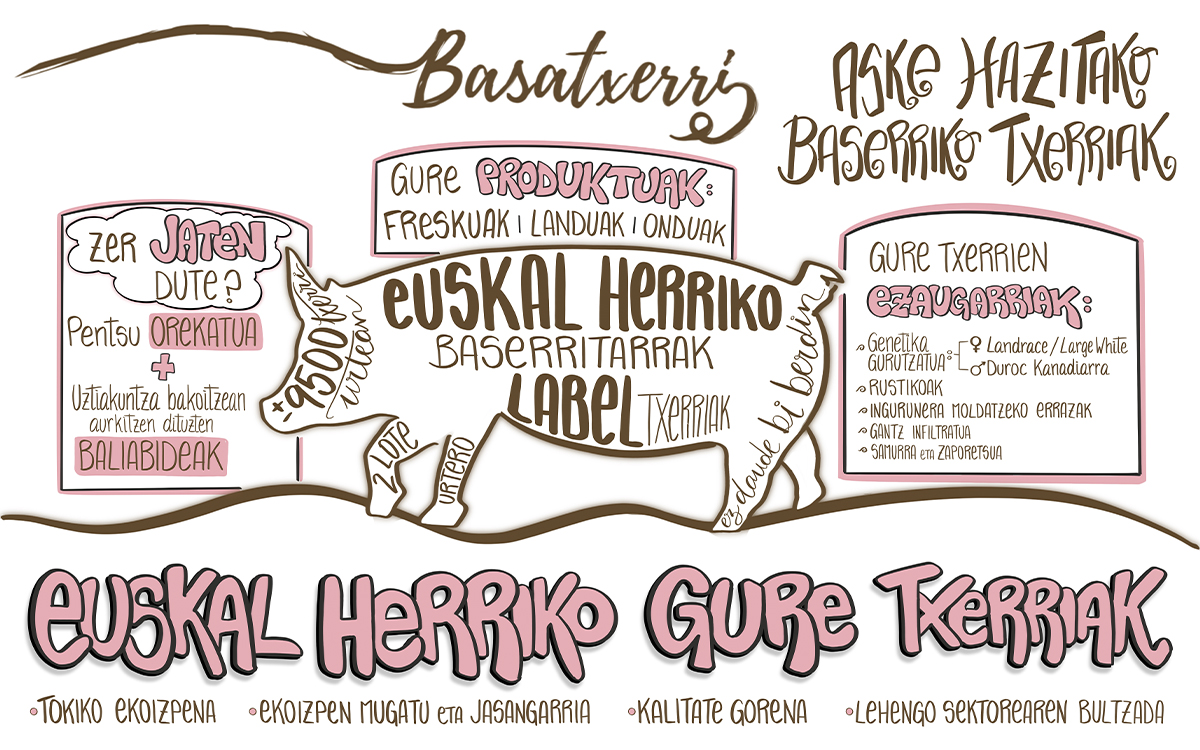 Basatxerri
ASKE HAZITAKO
BASERRIKO TXERRIAK
GURE PRODUKTUAK:
FRESKUAK | LANDUAK | ONDUAK
ZER JATEN
DUTE?
Pentsu OREKATUA
+
Uztiakuntza bakoitzean
aurkitzen dituzten
BALIABIDEAK
± 9500 txerri
urtean
EUSKAL HERRIKO
BASERRITARRAK
LABEL TXERRIAK
2 LOTE
URTERO
ez daude bi berdin
GURE TXERRIEN
EZAUGARRIAK:
Genetika
GURUTZATUA:
♀ Landrace / Large White
♂ Duroc Kanadiarra
RUSTIKOAK
INGURUNERA MOLDATZEKO ERRAZAK
GANTZ INFILTRATUA
SAMURRA ETA ZAPORETSUA
EUSKAL HERRIKO GURE TXERRIAK
•TOKIKO EKOIZPENA •EKOIZPEN MUGATU ETA JASANGARRIA •KALITATE GORENA •LEHENGO SEKTOREAREN BULTZADA